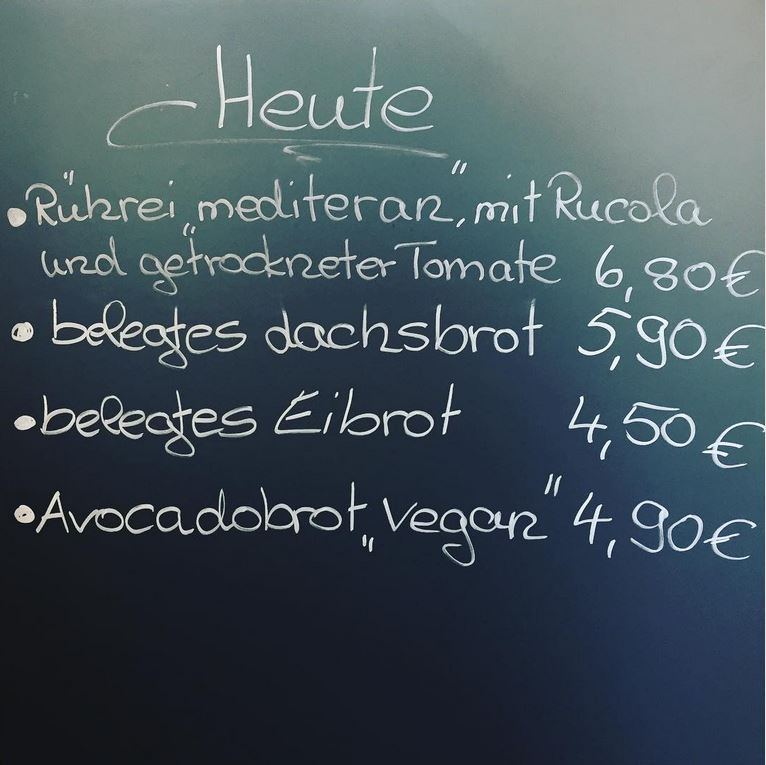 Heute
• Rührei „mediteran“, mit Rucola
und getrockneter Tomate 6,80€
• belegtes dachsbrot 5,90€
• belegtes Eibrot 4,50€
• Avocadobrot „vegan“ 4,90€